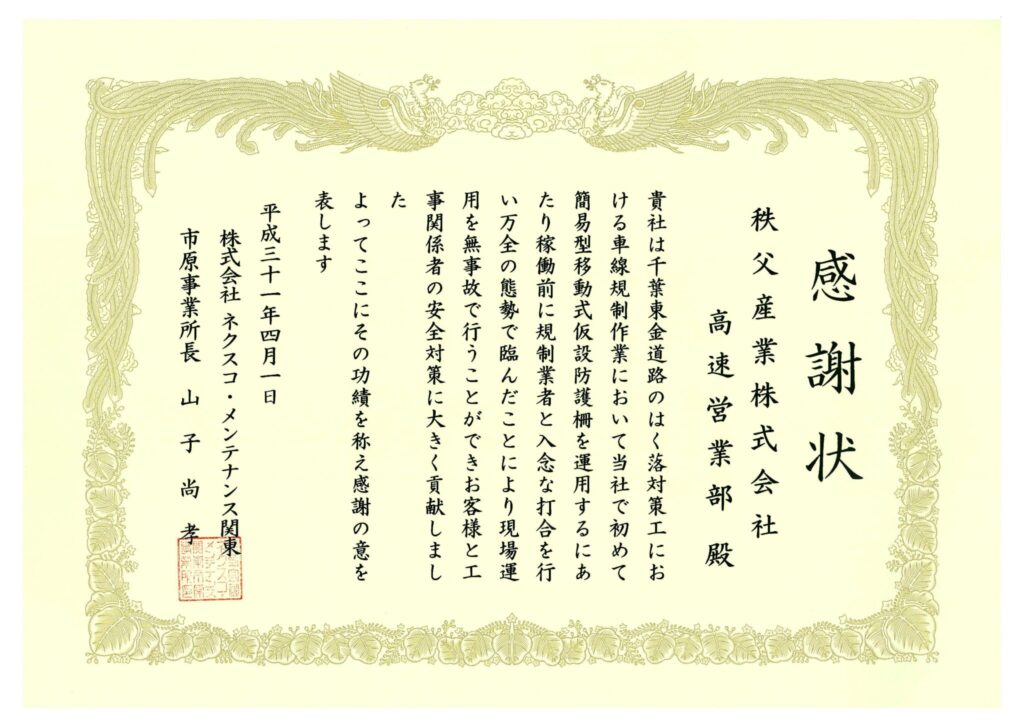 感謝状
秩父産業株式会社
高速営業部 殿
貴社は千葉東金道路のはく落対策工にお
ける車線規制作業において当社で初めて
簡易型移動式仮設防護柵を運用するにあ
たり稼働前に規制業者と入念な打合を行
い万全の態勢で臨んだことにより現場運
用を無事故で行うことができお客様と工
事関係者の安全対策に大きく貢献しまし
た
よってここにその功績を称え感謝の意を
表します
平成三十一年四月一日
株式会社 ネクスコ・メンテナンス関東
市原事業所長 山子尚孝